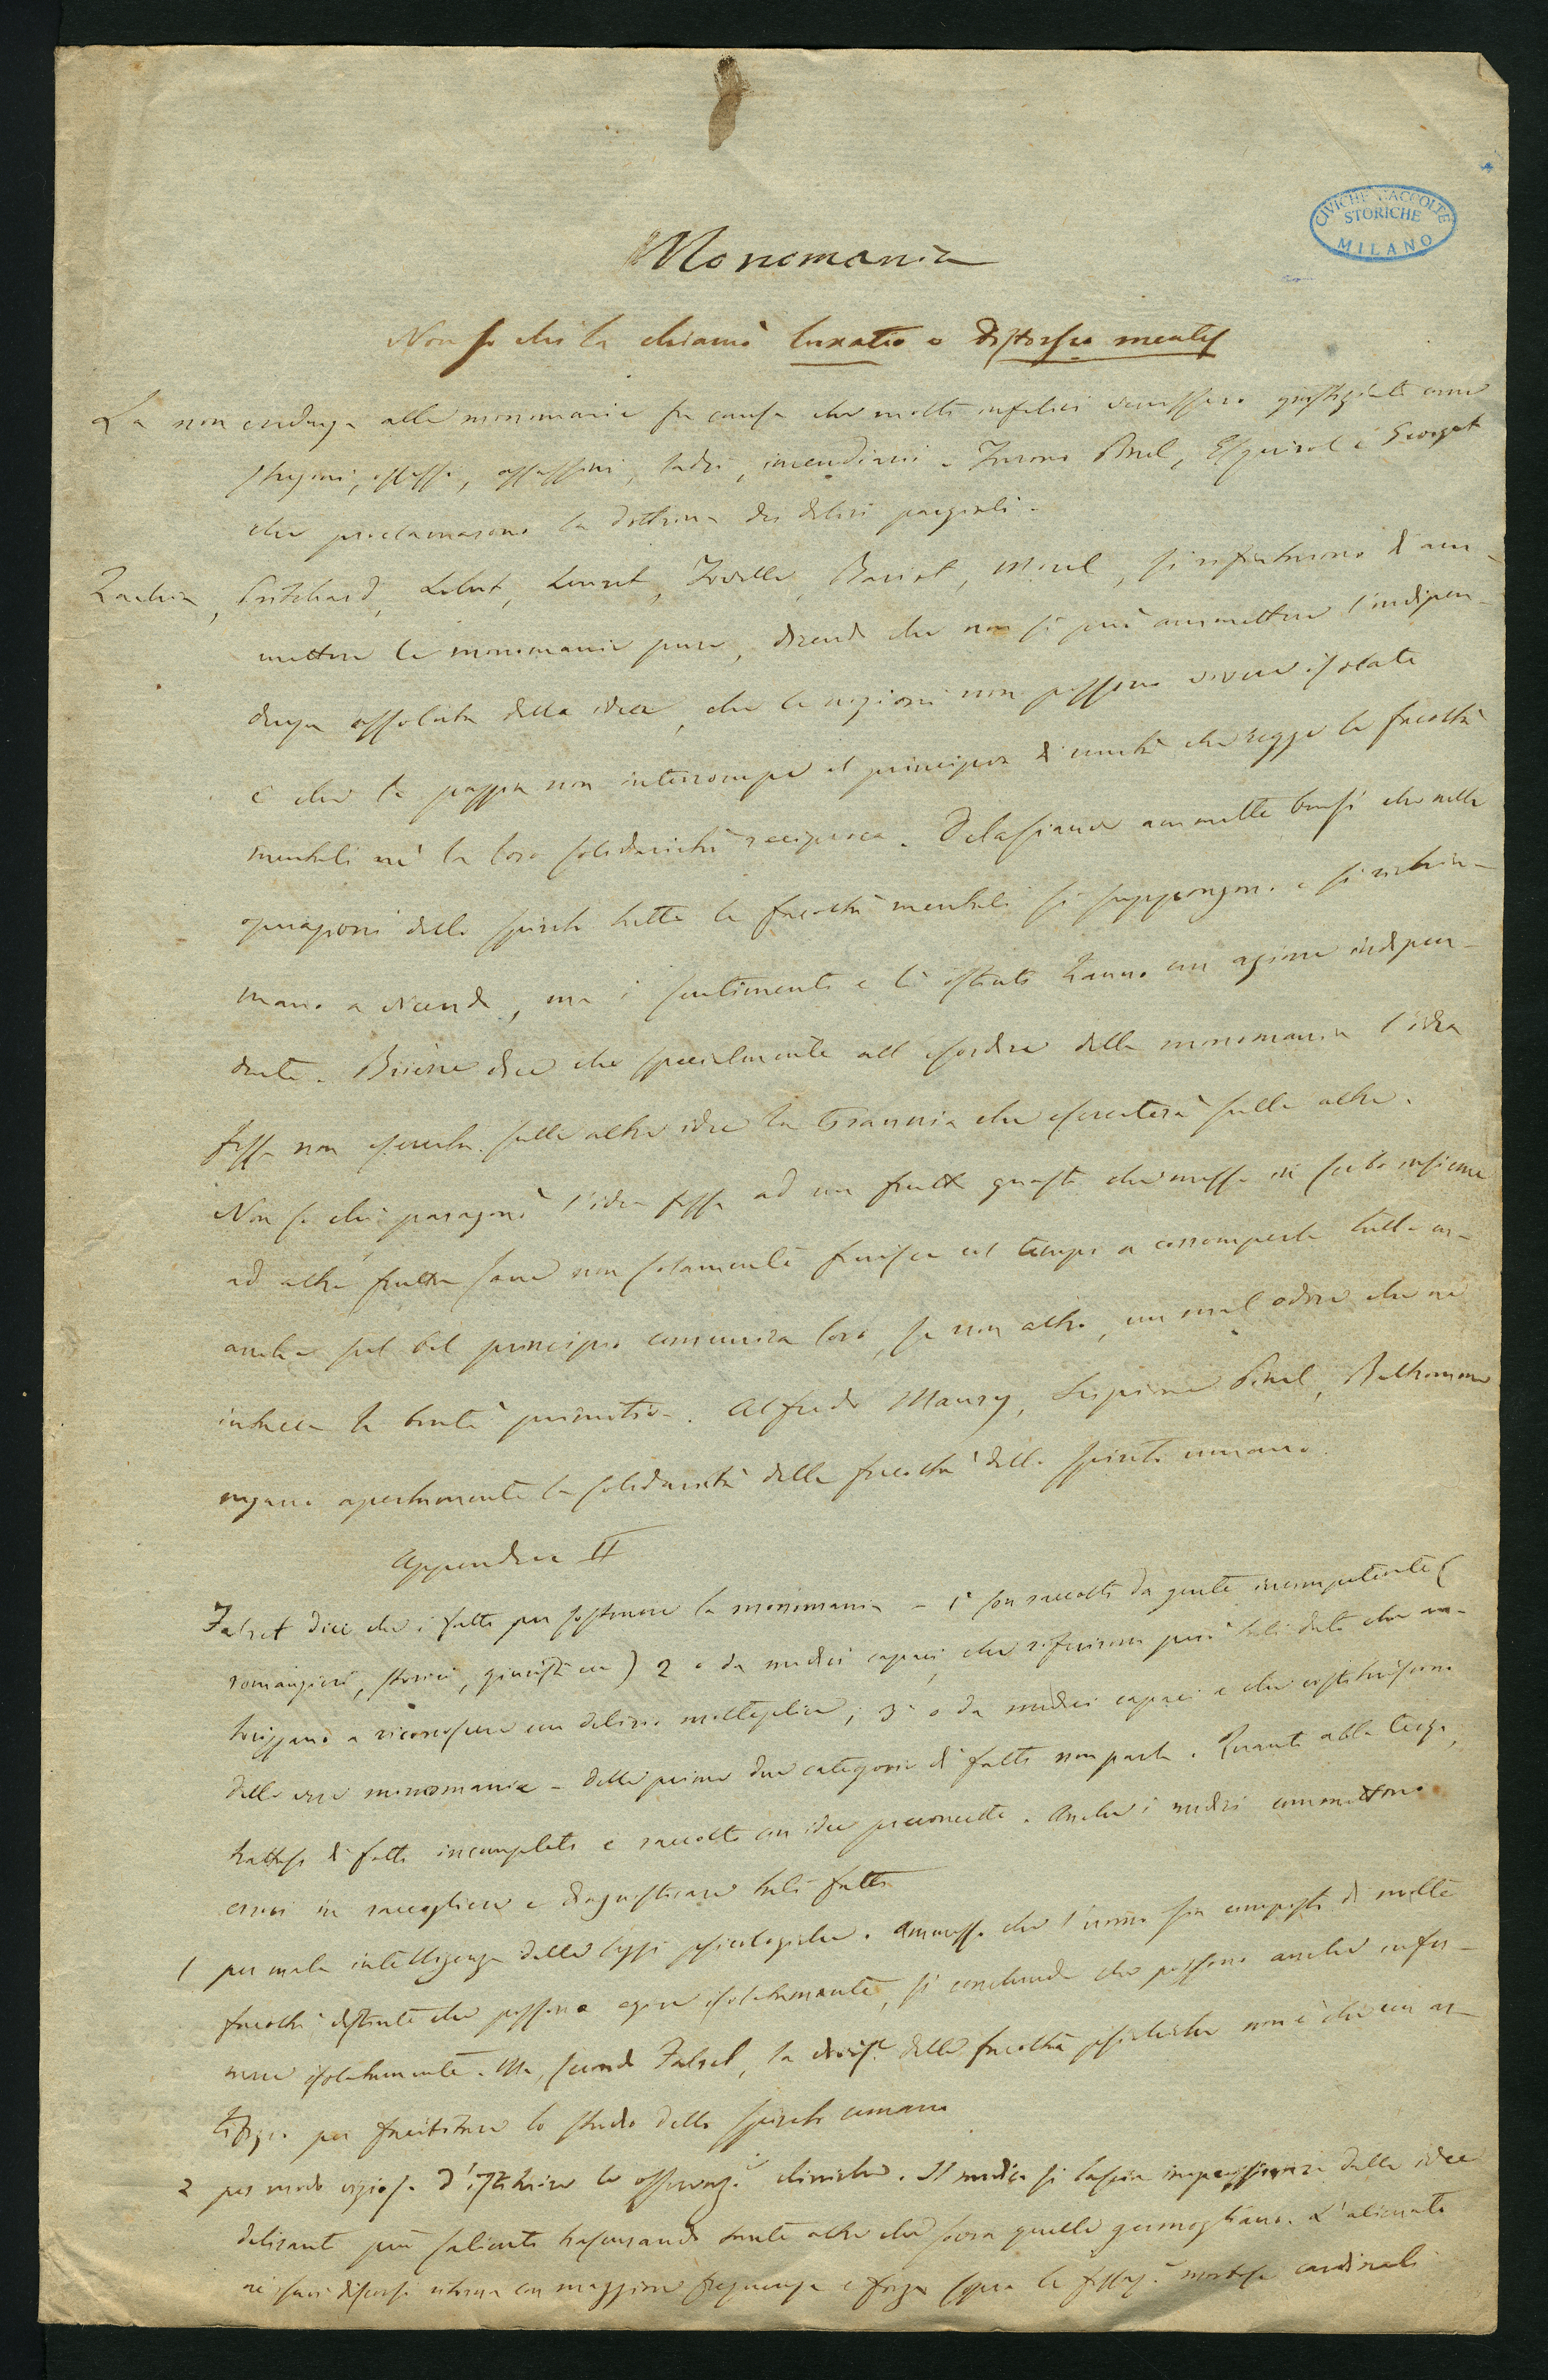 CIVICHE RACCOLTE
STORICHE
MILANO
Monomania
Non so chi la chiamò luxatio o distorsio mentis
La non credenza alle monomanie fu causa che molti infelici venissero giustiziati come
stregoni, ossessi, assassini, ladri, incendiari. Furono Pinel, Esquirol e Georget
che proclamarono la dottrina dei deliri parziali.
Zacchia, Pritchard, Lelut, Leuret, Foville, Bariod, Morel, si rifiutarono d'am-
mettere le monomanie pure, dicendo che non si può ammettere l'indipen-
denza assoluta delle idee, che le ragioni non possono vivere isolate
e che la pazzia non interrompe il principio di unità che regge le facoltà
mentali nè la loro solidarietà reciproca. Delasiauve ammette bensì che nelle
operazioni dello spirito tutte le facoltà mentali si suppongono e si richia-
mano a vicenda, ma i sentimenti e li istinti hanno un azione indipen-
dente. Brierre dice che specialmente all'esordire della monomania l'idea
fissa non esercita sulle altre idee la tirannia che eserciterà sulle altre.
Non so chi paragonò l'idea fissa ad un frutto guasto che messo in serbo insieme
ad altre frutta sane non solamente finisce col tempo a corromperle tutte ma
anche sul bel principio comunica loro, se non altro, un mal odore che ne
intacca la bontà primitiva. Alfredo Maury, Scipione Pinel, Belhomme
negano apertamente la solidarietà delle facoltà dello spirito umano.
Appendice II
Falret dice che i fatti per sostenere la monomania - 1° son raccolti da gente incompetente (
romanzieri, storici, giuristi ecc) 2 o da medici capaci, che riferirono però tali dati che au-
torizzano a riconoscere un delirio molteplice; 3° o da medici capaci e che costituiscono
delle vere monomanie - Delle prime due categorie di fatti non parla. Quanto alla terza,
trattasi di fatti incompleti e raccolti con idee preconcette. Anche i medici commettono
errori in raccogliere e diagnosticare tali fatti
1 per mala intelligenza delle leggi psicologiche. Ammesso che l'uomo sia composto di molte
facoltà distinte che possono agire isolatamente, si conclude che possono anche infer-
marsi isolatamente. Ma, secondo Falret, la divis.e delle facoltà psichiche non è che un ar-
tifizio per facilitare lo studio dello spirito umano
2 per modo vizioso d'istituire le osservaz.i cliniche. Il medico si lascia impressionare dalle idee
deliranti più salienti trascurando tante altre che sovra quelle germogliano. L'alienato
ne' suoi discorsi ritorna con maggiore frequenza e forza sopra le morbose cardinali